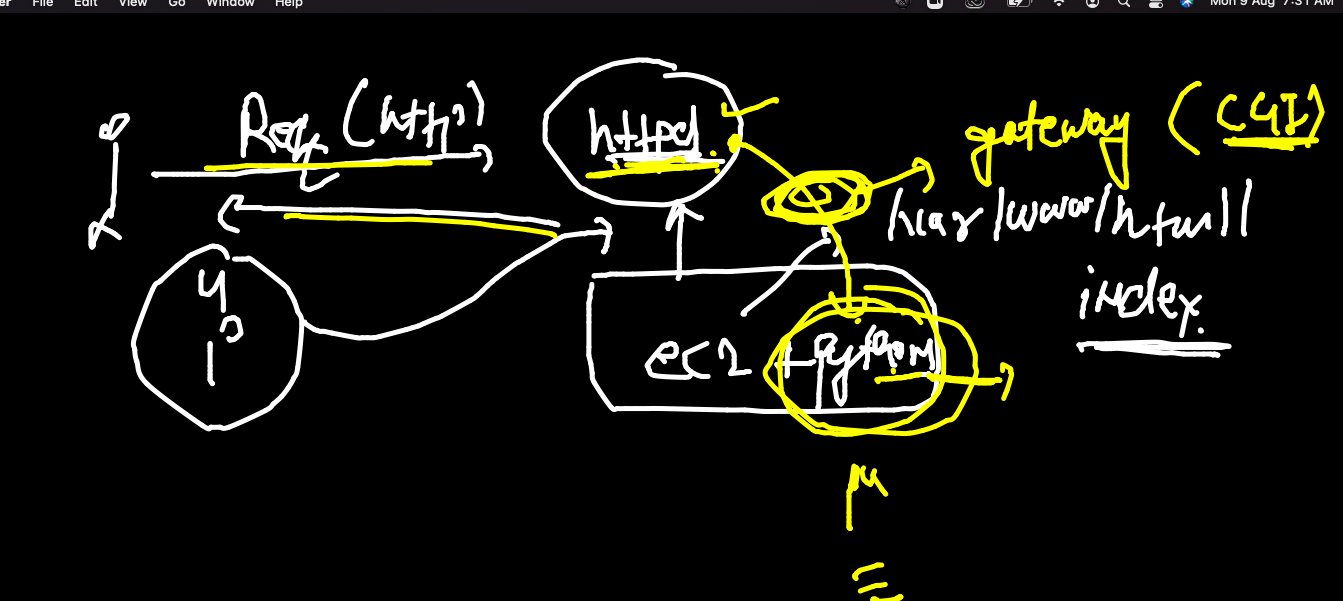 er File Edit View Go Window Help Mon 9 Aug 7:31 AM
Req (http)
httpd
gateway (CGI)
/var/www/html/
index
ec2 + python